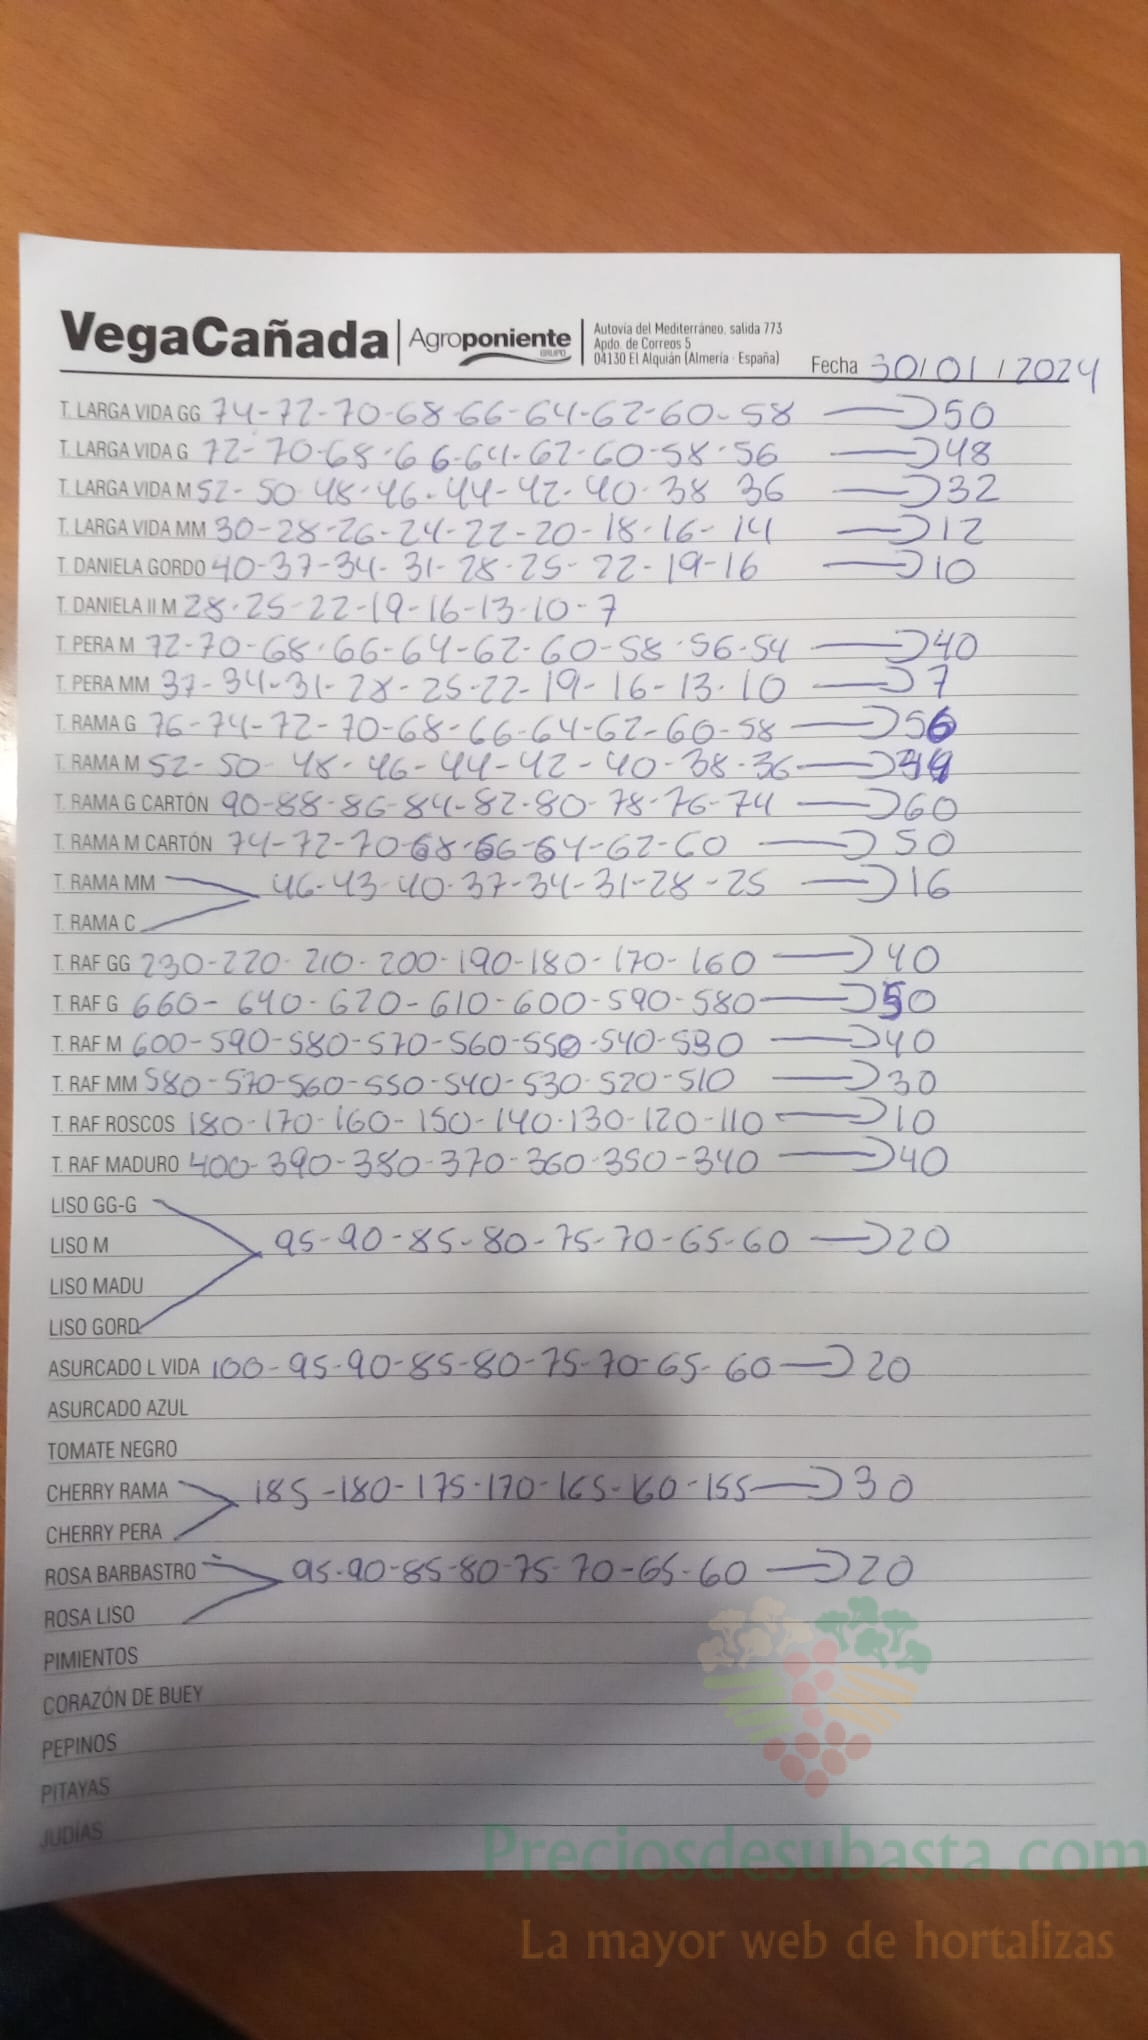 VegaCañada Agroponiente GRUPO
Autovía del Mediterráneo, salida 773
Apdo. de Correos 5
04130 El Alquián (Almería · España)
Fecha 30/01/2024
T. LARGA VIDA GG 74-72-70-68-66-64-62-60-58 50
T. LARGA VIDA G 72-70-68-66-64-62-60-58-56 48
T. LARGA VIDA M 52-50-48-46-44-42-40-38 36 32
T. LARGA VIDA MM 30-28-26-24-22-20-18-16-14 12
T. DANIELA GORDO 40-37-34-31-28-25-22-19-16 10
T. DANIELA II M 28-25-22-19-16-13-10-7
T. PERA M 72-70-68-66-64-62-60-58-56-54 40
T. PERA MM 37-34-31-28-25-22-19-16-13-10 7
T. RAMA G 76-74-72-70-68-66-64-62-60-58 56
T. RAMA M 52-50-48-46-44-42-40-38-36
T. RAMA G CARTÓN 90-88-86-84-82-80-78-76-74 60
T. RAMA M CARTÓN 74-72-70-68-66-64-62-60 50
T. RAMA MM 46-43-40-37-34-31-28-25 16
T. RAMA C
T. RAF GG 230-220-210-200-190-180-170-160 40
T. RAF G 660-640-620-610-600-590-580 50
T. RAF M 600-590-580-570-560-550-540-530 40
T. RAF MM 580-570-560-550-540-530-520-510 30
T. RAF ROSCOS 180-170-160-150-140-130-120-110 10
T. RAF MADURO 400-390-380-370-360-350-340 40
LISO GG-G
LISO M 95-90-85-80-75-70-65-60 20
LISO MADU
LISO GORD
ASURCADO L VIDA 100-95-90-85-80-75-70-65-60 20
ASURCADO AZUL
TOMATE NEGRO
CHERRY RAMA 185-180-175-170-165-160-155 30
CHERRY PERA
ROSA BARBASTRO 95-90-85-80-75-70-65-60 20
ROSA LISO
PIMIENTOS
CORAZÓN DE BUEY
PEPINOS
PITAYAS
JUDÍAS
Preciosdesubasta.com
La mayor web de hortalizas